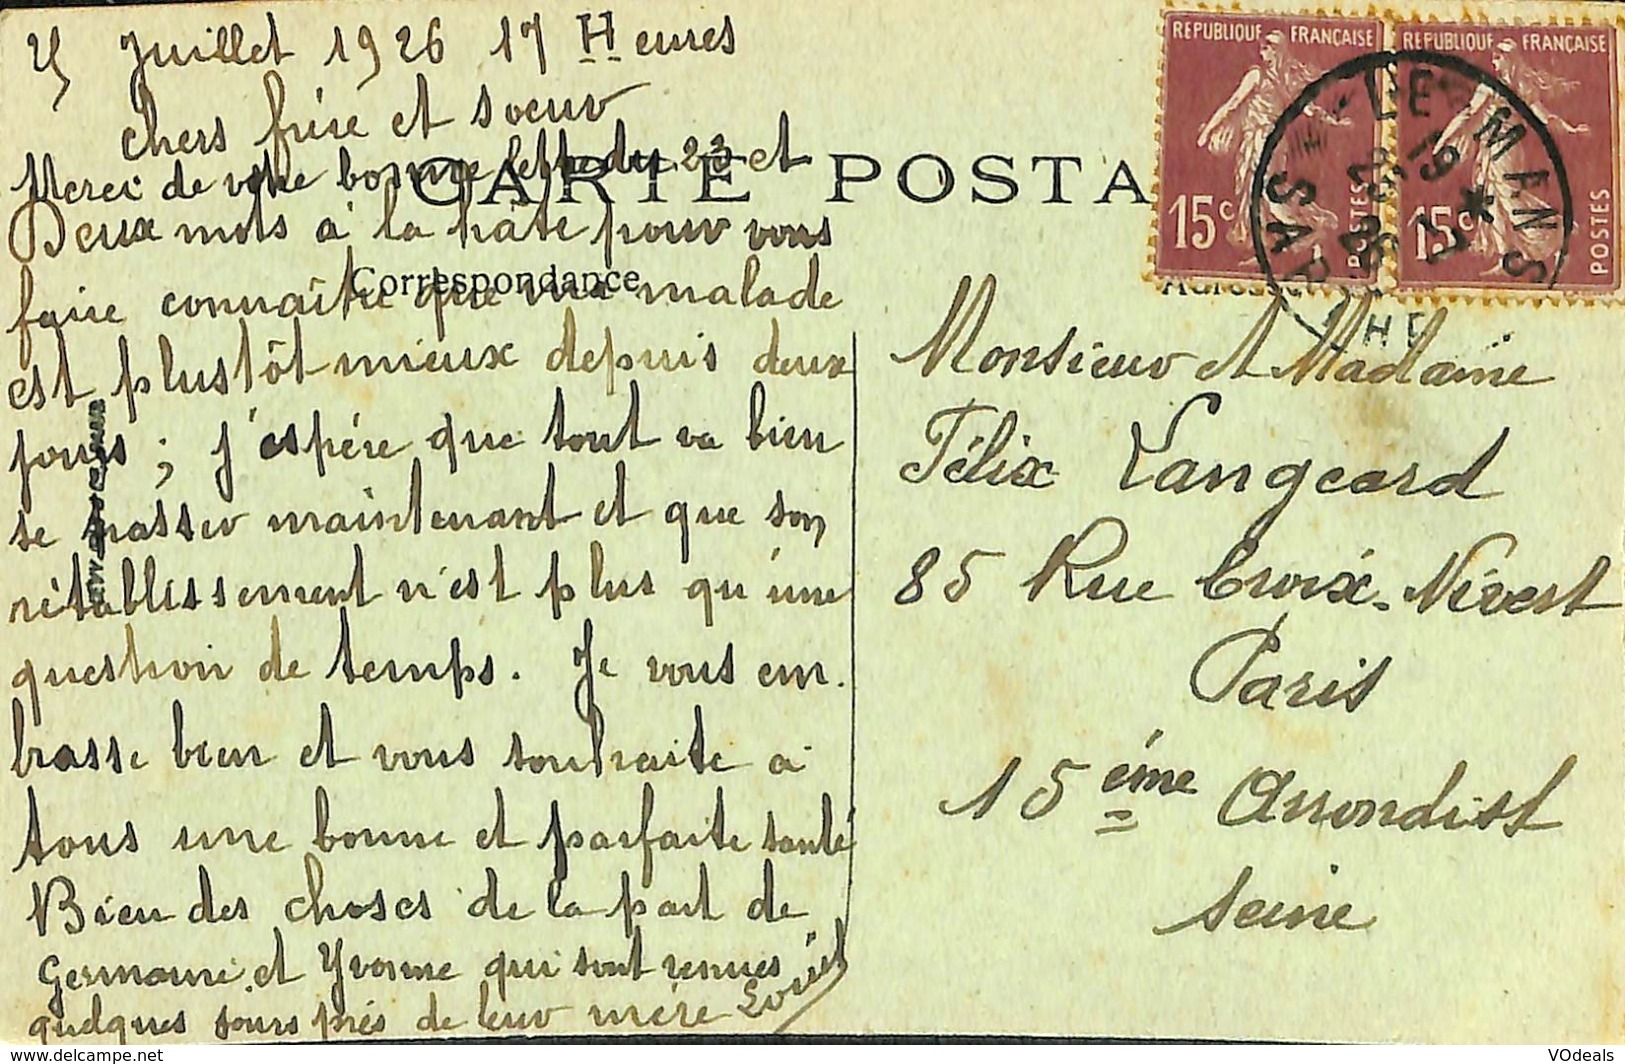 25 Juillet 1926 17 Heures
chers frère et soeur
Merci de votre bonne lettre du 23 et
Deux mots à la hâte pour vous
faire connaître que ma malade
est plustôt mieux depuis deux
jours ; j'espère que tout va bien
se passer maintenant et que son
rétablissement n'est plus qu'une
question de temps. Je vous em.
brasse bien et vous souhaite à
tous une bonne et parfaite santé
Bien des choses de la part de
Germaine et Yvonne qui sont venues
quelques jours près de leur mère
CARTE POSTA
Correspondance
REPUBLIQUE FRANÇAISE
15c
POSTES
REPUBLIQUE FRANÇAISE
15c
POSTES
LE MANS
SARTHE
19 *
Monsieur et Madame
Félix Langeard
85 Rue Croix-Nivert
Paris
15ème Arrondist
Seine
www.delcampe.net
VOdeals